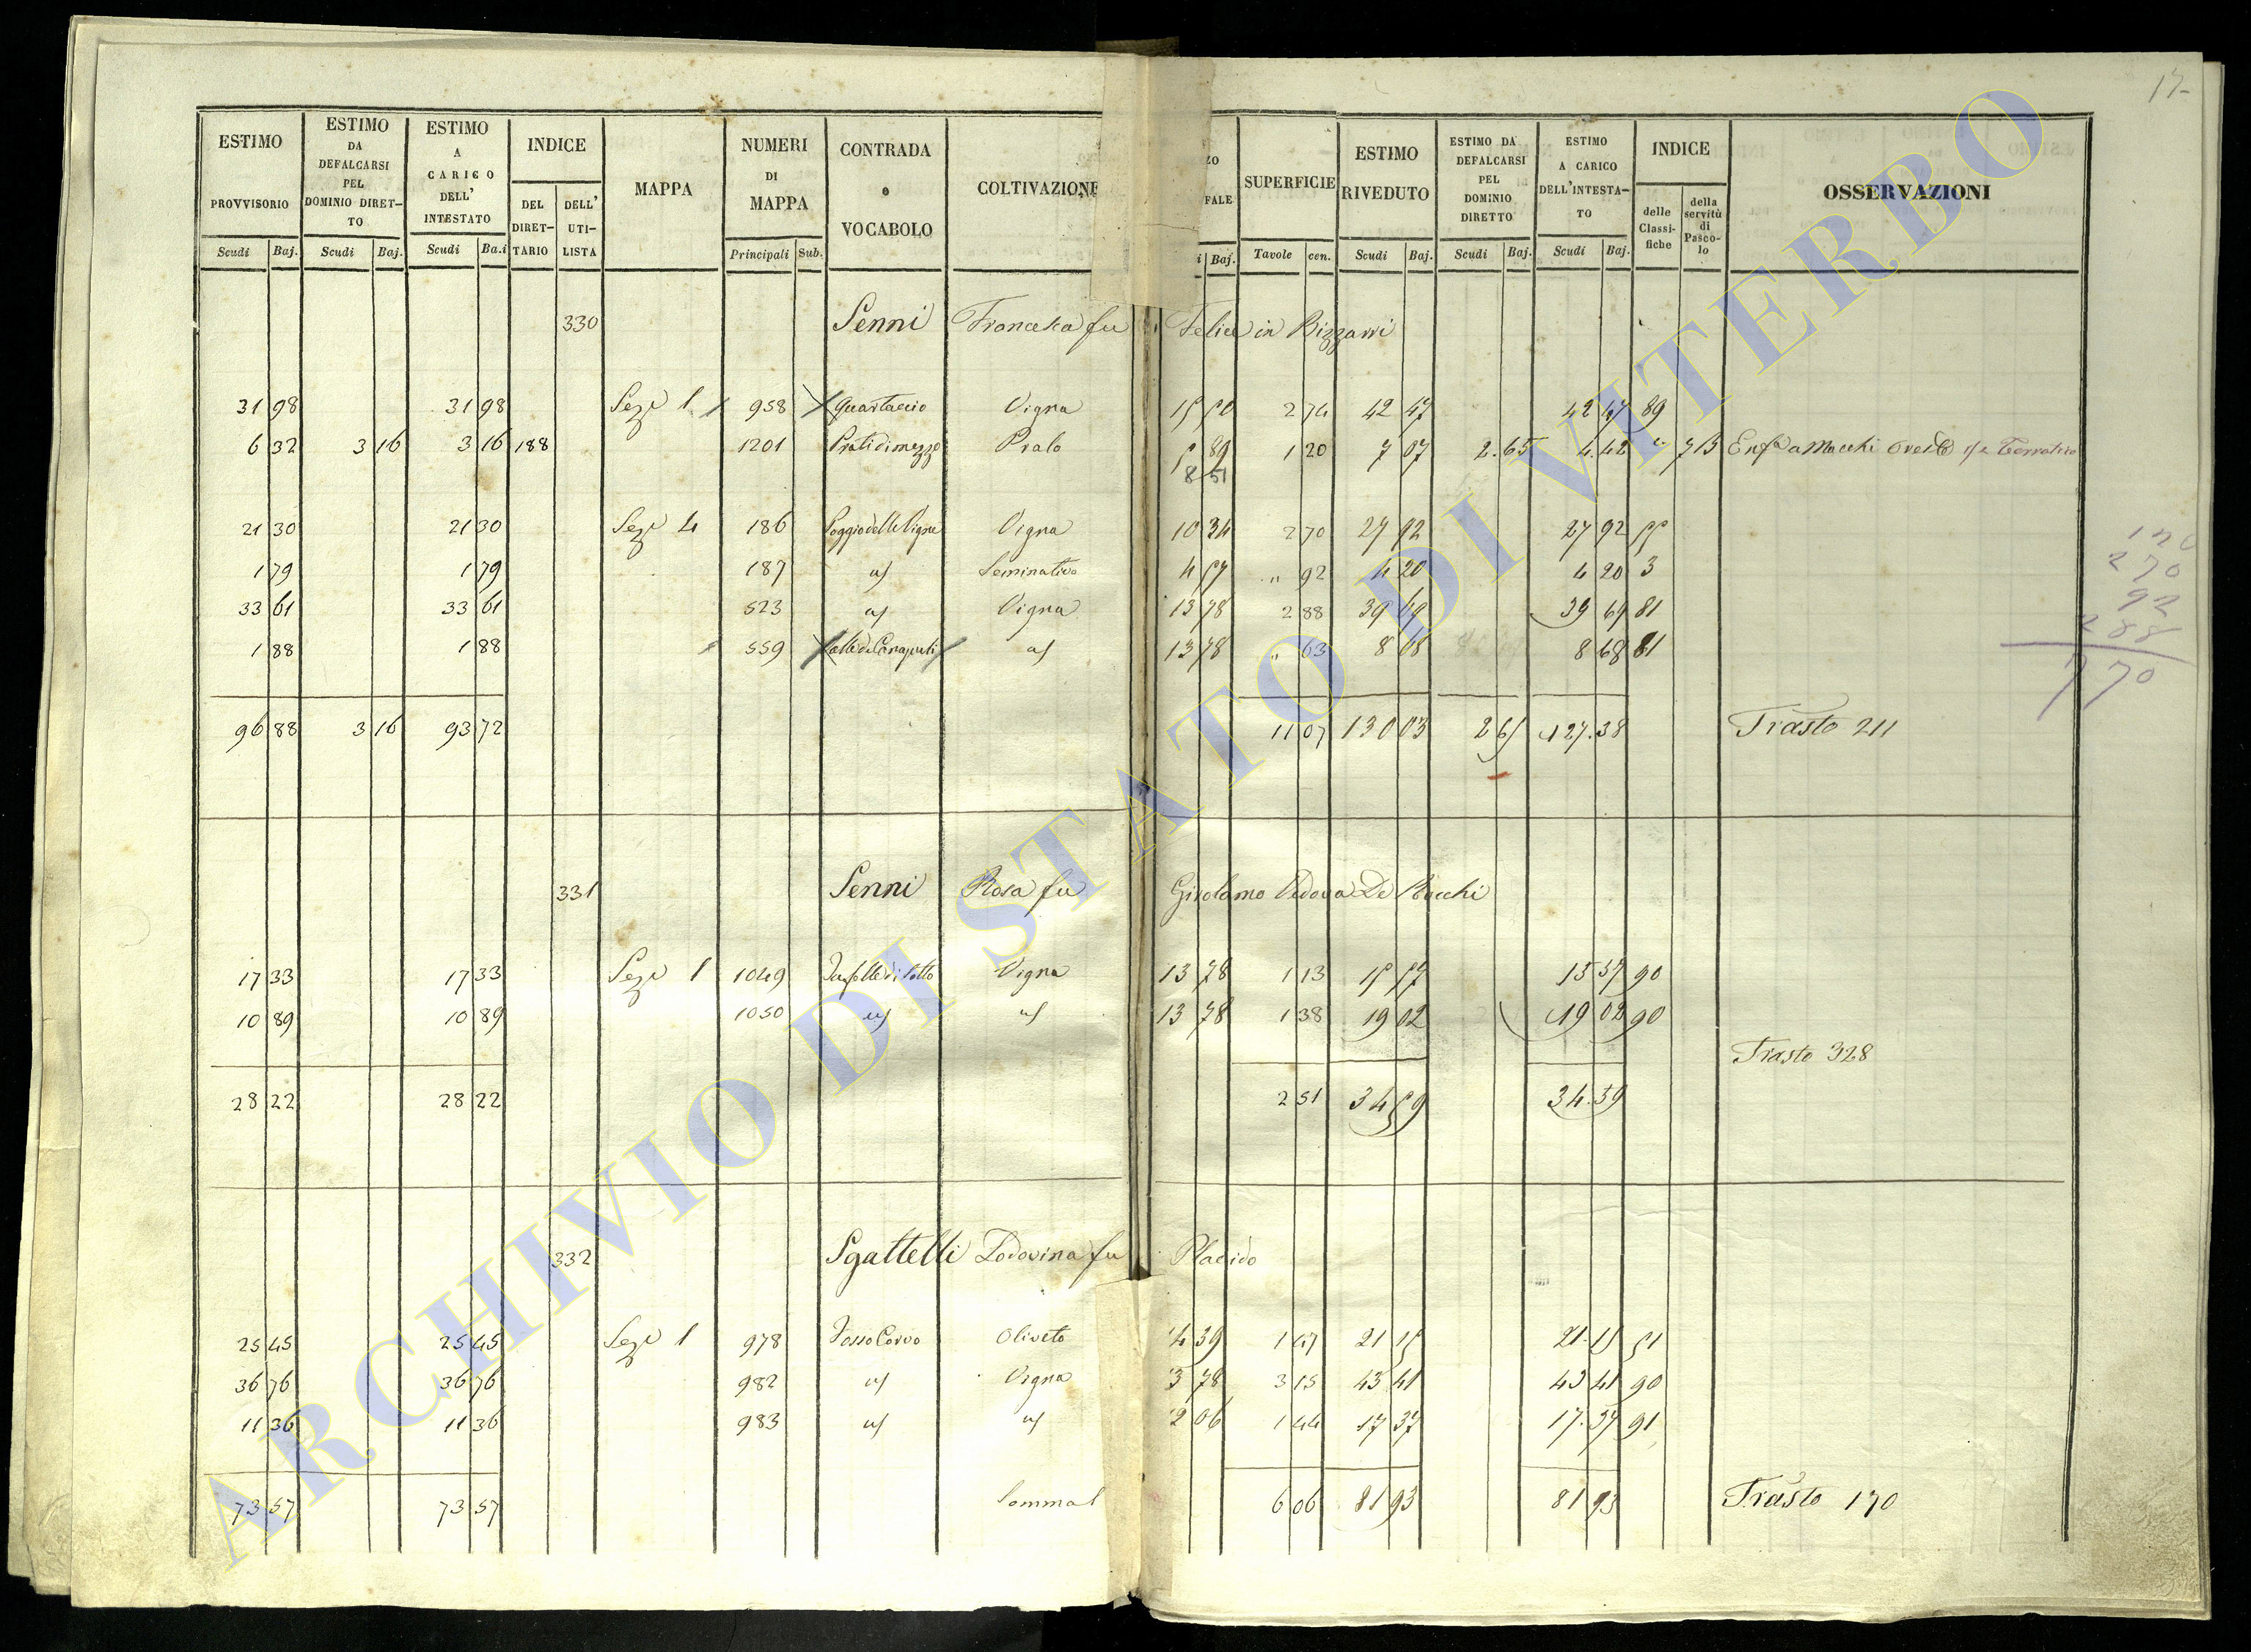 17
ESTIMO PROVVISORIO | ESTIMO DA DEFALCARSI PEL DOMINIO DIRETTO | ESTIMO A CARICO DELL' INTESTATO | INDICE | MAPPA | NUMERI DI MAPPA | CONTRADA o VOCABOLO | COLTIVAZIONE | ZO FALE | SUPERFICIE | ESTIMO RIVEDUTO | ESTIMO DA DEFALCARSI PEL DOMINIO DIRETTO | ESTIMO A CARICO DELL'INTESTATO | INDICE | OSSERVAZIONI
Scudi | Baj. | Scudi | Baj. | Scudi | Ba.i | DEL DIRETTARIO | DELL' UTILISTA | Principali | Sub. | i | Baj. | Tavole | cen. | Scudi | Baj. | Scudi | Baj. | Scudi | Baj. | delle Classifiche | della servitù di Pascolo
330 Senni Francesca fu Felice in Bizzarri
31 98 | 31 98 | Sez. 1 | 958 | Quartaccio | Vigna | 15 50 | 2 74 | 42 47 | 42 47 | 89
6 32 | 3 16 | 3 16 | 188 | 1201 | Prati di mezzo | Prato | 5 89 | 1 20 | 7 07 | 2.65 | 4.42 | " | 713 | Enfa a Macchi Oreste
8 51
21 30 | 21 30 | Sez. 4 | 186 | Poggio delle Vigne | Vigna | 10 34 | 2 70 | 27 92 | 27 92 | 55
1 79 | 1 79 | 187 | us | Seminativo | 4 57 | " 92 | 4 20 | 4 20 | 3
33 61 | 33 61 | 523 | us | Vigna | 13 78 | 2 88 | 39 69 | 39 69 | 81
1 88 | 1 88 | 559 | us | 13 78 | " 63 | 8 68 | 8 68 | 81
96 88 | 3 16 | 93 72 | 11 07 | 130 03 | 2 65 | 127.38 | Trasto 211
120
270
92
288
770
331 Senni Rosa fu Girolamo Vedova De Rocchi
17 33 | 17 33 | Sez. 1 | 1049 | Vigna | 13 78 | 1 13 | 15 57 | 15 57 | 90
10 89 | 10 89 | 1050 | us | us | 13 78 | 1 38 | 19 02 | 19 02 | 90
Trasto 328
28 22 | 28 22 | 2 51 | 34 59 | 34.59
332 Sgattelli Lodovina fu Placido
25 45 | 25 45 | Sez. 1 | 978 | Fosso Corvo | Oliveto | 4 39 | 1 47 | 21 15 | 21.15 | 51
36 76 | 36 76 | 982 | us | Vigna | 3 78 | 3 15 | 43 41 | 43 41 | 90
11 36 | 11 36 | 983 | us | us | 2 06 | 1 44 | 17 37 | 17.37 | 91
73 57 | 73 57 | Somma | 6 06 | 81 93 | 81 93 | Trasto 170
ARCHIVIO DI STATO DI VITERBO